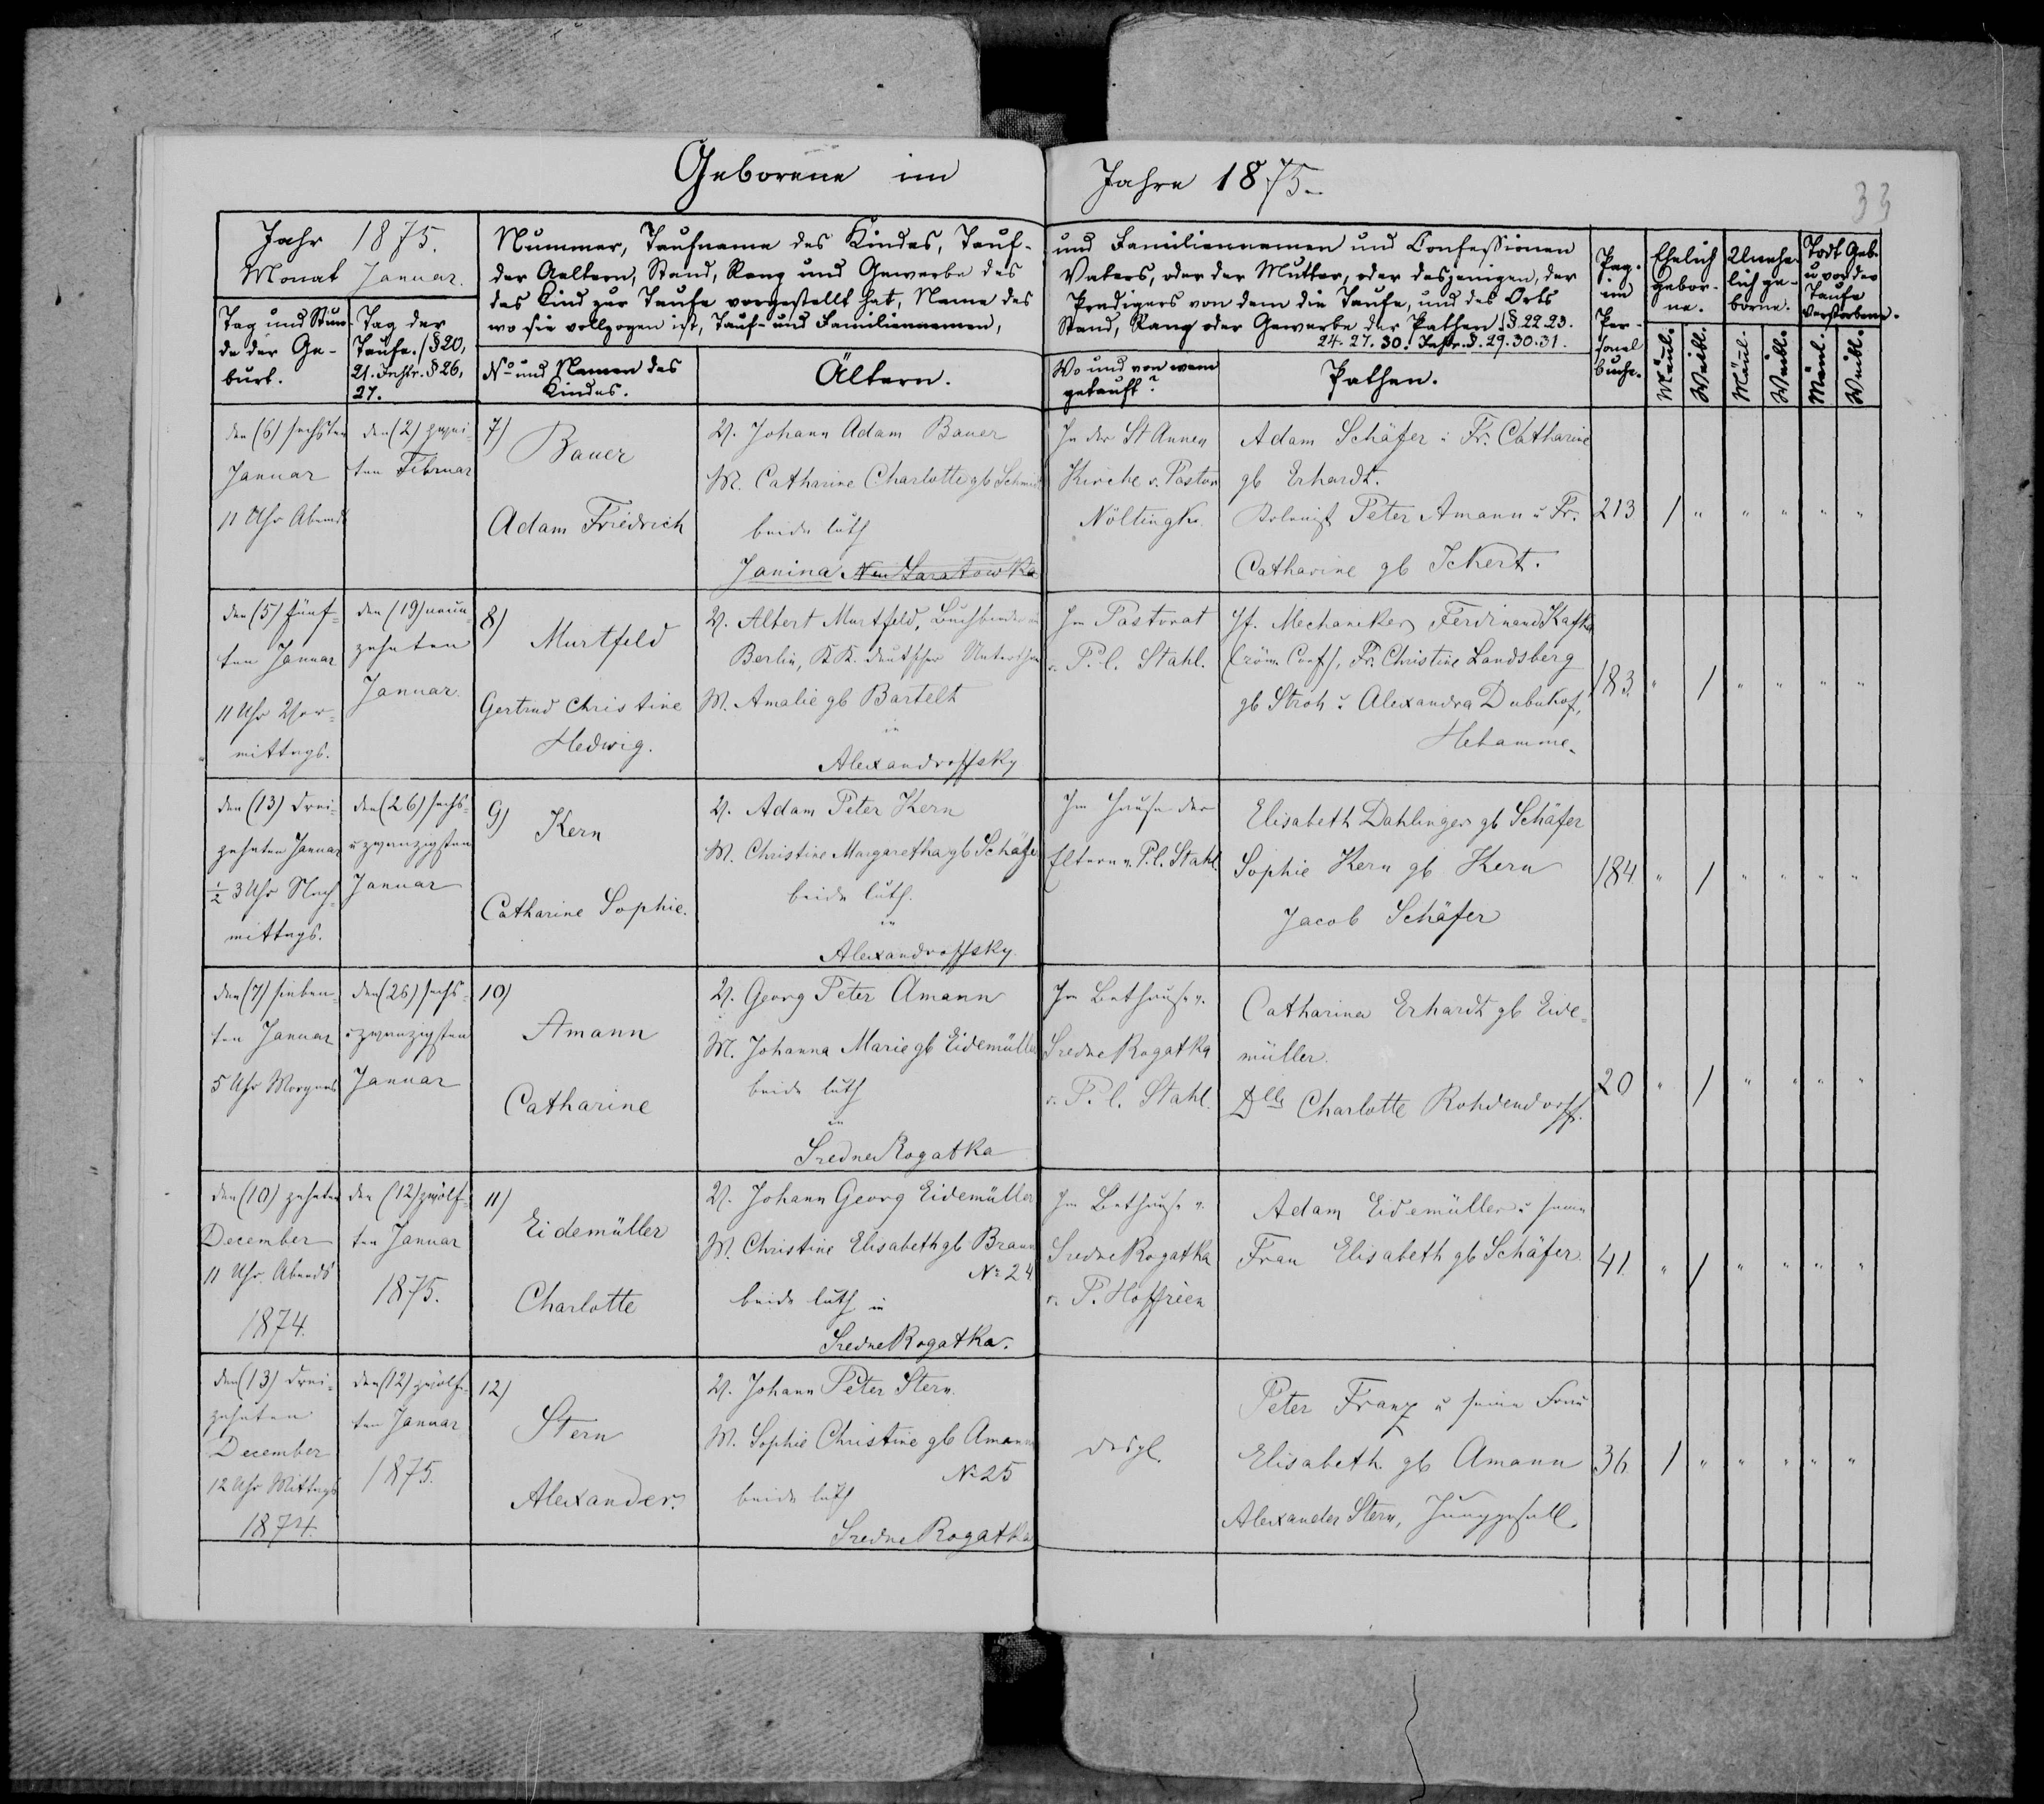 Geborene im Jahre 1875.
33
Jahr 1875.
Monat Januar.
Tag und Stun-
de der Ge-
burt.
Tag der
Taufe. /§20,
21. Instr. §26,
27.
Nummer, Taufname des Kindes, Tauf-
der Aeltern, Stand, Rang und Gewerbe des
das Kind zur Taufe vorgestellt hat, Name des
wo sie vollzogen ist, Tauf- und Familiennamen,
No und Namen des
Kindes.
Ältern.
und Familiennamen und Confessionen
Vaters, oder der Mutter, oder desjenigen, der
Predigers von dem die Taufe, und des Orts
Stand, Rang oder Gewerbe der Pathen. §.22.23.
24. 27. 30. Instr. §. 29. 30. 31.
Wo und von wem
getauft?
Pathen.
Pag.
im
Per-
sonal
buche.
Ehelich
gebor-
ne.
Unehe-
lich ge-
borne.
Todt Geb.
u vor der
Taufe
verstorbene.
Mänl.
Weibl.
Mänl.
Weibl.
Mänl.
Weibl.
den (6) sechsten
Januar
11 Uhr Abends
den (2) zwei-
ten Februar
7)
Bauer
Adam Friedrich
V. Johann Adam Bauer
M. Catharine Charlotte gb Schmidt
beide luth
Janina Neu Saratowka
In der St Annen
Kirche v. Pastor
Nöltingk.
Adam Schäfer u Fr. Catharine
gb Erhardt.
Kolonist Peter Amann u Fr.
Catharine gb Ickert.
213 / " " " " "
den (5) fünf-
ten Januar
11 Uhr Vor-
mittags.
den (19) neun-
zehnten
Januar.
8)
Murtfeld
Gertrud Christine
Hedwig.
V. Albert Murtfeld, Buchbinder
Berlin, KK. deutscher Unterthan
M. Amalie gb Bartelt
in
Alexandroffsky
Im Pastorat
v. P. l. Stahl.
H. Mechaniker Ferdinand Kafka
(röm. Conf), Fr. Christine Landsberg
gb Stroh u Alexandra Dubukof,
Hebamme.
183. " / " " " "
den (13) drei-
zehnten Januar
½ 3 Uhr Nach-
mittags.
den (26) sechs-
u zwanzigsten
Januar
9)
Kern
Catharine Sophie.
V. Adam Peter Kern
M. Christine Margaretha gb Schäfer
beide luth.
in
Alexandroffsky.
Im Hause der
Eltern v. P. l. Stahl.
Elisabeth Dahlinger gb Schäfer
Sophie Kern gb Kern
Jacob Schäfer
184. " / " " " "
den (7) sieben-
ten Januar
5 Uhr Morgens
den (26) sechs-
u zwanzigsten
Januar
10)
Amann
Catharine
V. Georg Peter Amann
M. Johanna Marie gb Eidemüller
beide luth
in
Sredne Rogatka
Im Bethause v.
Sredne Rogatka
v. P. l. Stahl.
Catharina Erhardt gb Eide-
müller.
Dlle Charlotte Rohdendorff.
20 " / " " " "
den (10) zehnten
December
11 Uhr Abends
1874.
den (12) zwölf-
ten Januar
1875.
11)
Eidemüller
Charlotte
V. Johann Georg Eidemüller
M. Christine Elisabeth gb Braun
No 24
beide luth in
Sredne Rogatka.
Im Bethause v.
Sredne Rogatka
v. P. Hoffréen
Adam Eidemüller u seine
Frau Elisabeth gb Schäfer.
41. " / " " " "
den (13) drei-
zehnten
December
12 Uhr Mittags
1874.
den (12) zwölf-
ten Januar
1875.
12)
Stern
Alexander.
V. Johann Peter Stern.
M. Sophie Christine gb Amann
No 25
beide luth
Sredne Rogatka
desgl.
Peter Franz u seine Frau
Elisabeth gb Amann
Alexander Stern, Junggesell.
36. / " " " " "